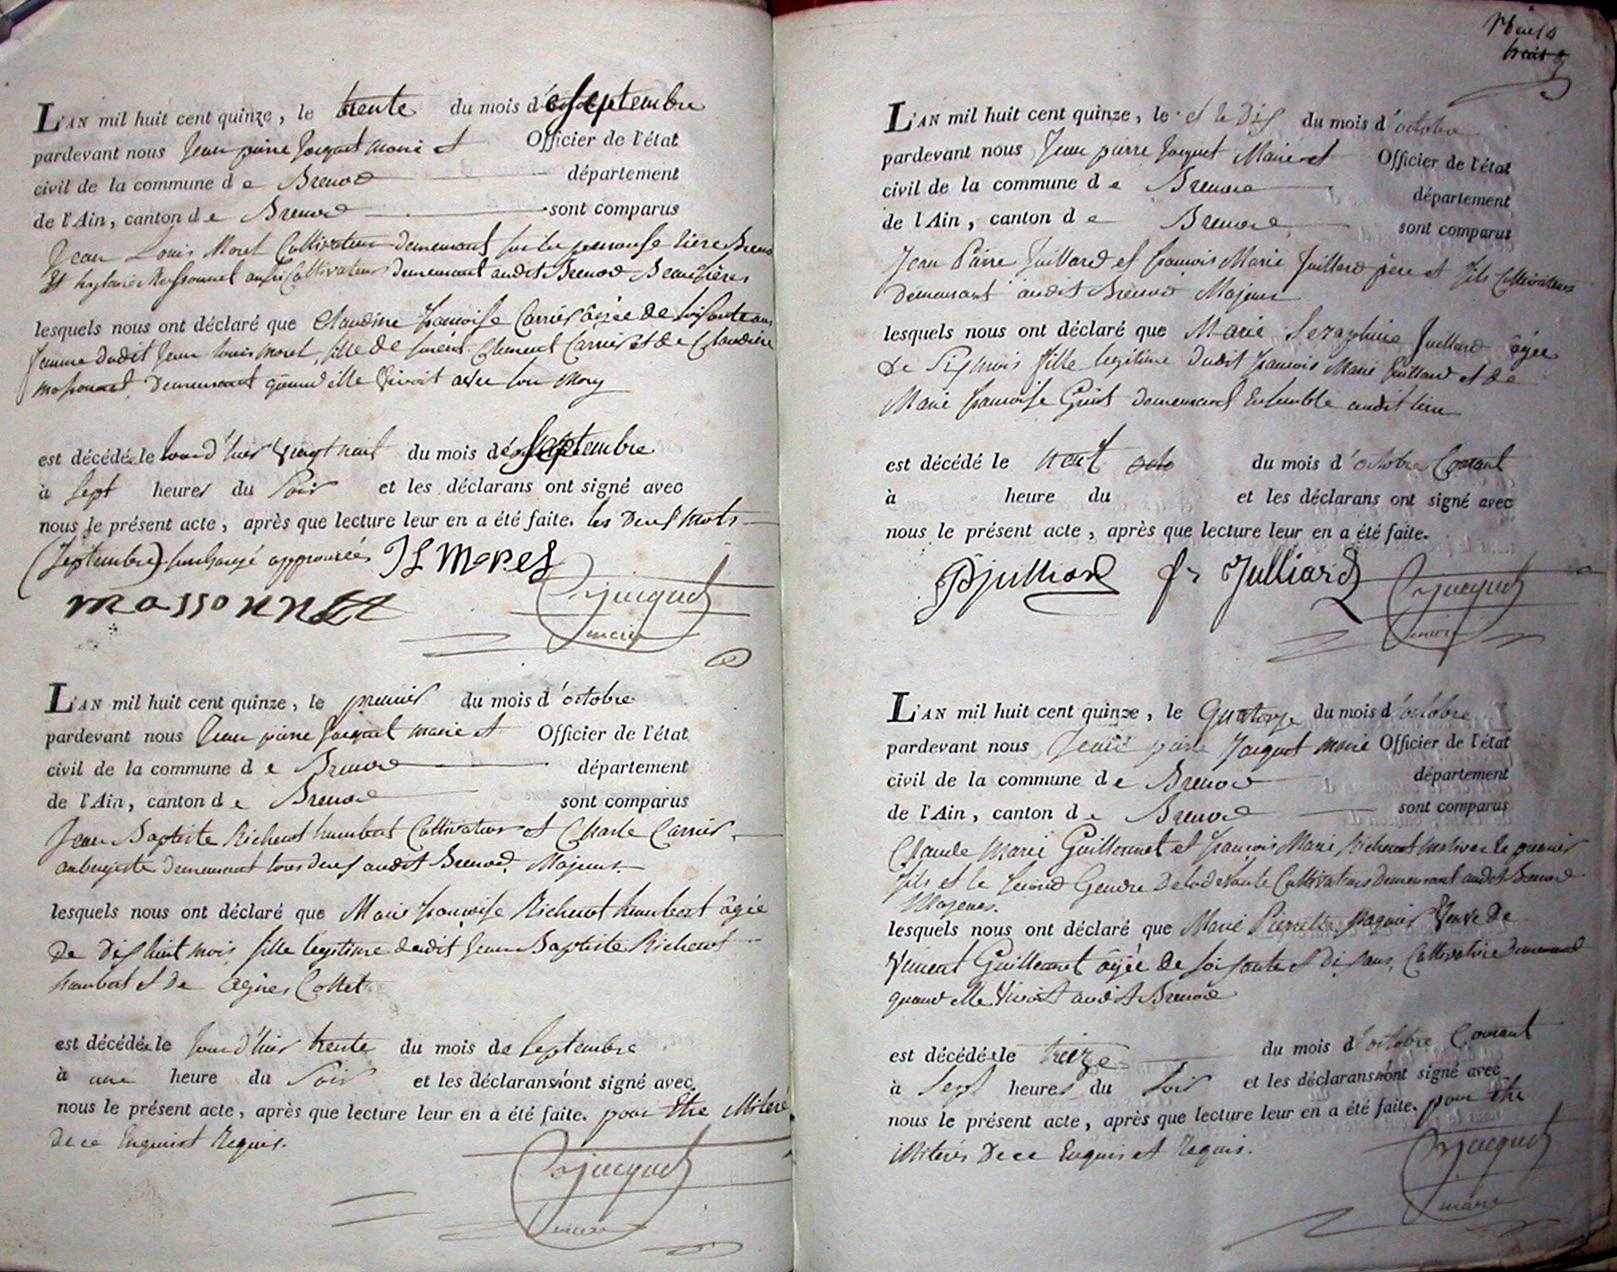 L'AN mil huit cent quinze, le trente du mois de Septembre
pardevant nous Jean pierre Jacquet maire et Officier de l'état
civil de la commune de Brenod département
de l'Ain, canton de Brenod sont comparus
Jean Louis Morel Cultivateur demeurant sur la rière Brenod
Et Massonnet aussi Cultivateur demeurant audit Brenod Beaufrères
lesquels nous ont déclaré que Claudine françoise Carrier âgée de soisante ans
femme dudit Jean louis morel, fille de Clement Carrier et de Claudine
massonnet, Demeurant quand elle Vivoit avec son Mary
est décédée le Jour d'hier Vingt neuf du mois de Septembre
à Sept heures du Soir et les déclarans ont signé avec
nous le présent acte, après que lecture leur en a été faite. les Deux mots
(Septembre) surchargé approuvés JL MOREL
massonnet Jpjacquet
maire
L'AN mil huit cent quinze, le premier du mois d'octobre
pardevant nous Jean pierre Jacquet maire et Officier de l'état
civil de la commune de Brenod département
de l'Ain, canton de Brenod sont comparus
Jean Baptiste Richerot humbert Cultivateur et Charle Carrier
aubergiste demeurant tous deux audit Brenod, Majeurs
lesquels nous ont déclaré que Marie françoise Richerot humbert âgée
de Dix huit mois fille légitime dudit Jean Baptiste Richerot
humbert et de Agnes Collet
est décédée le Jour d'hier trente du mois de Septembre
à une heure du Soir et les déclarans n'ont signé avec
nous le présent acte, après que lecture leur en a été faite. pour être illiteré
de ce Enquis et Requis.
Jpjacquet
maire
L'AN mil huit cent quinze, le et le Dix du mois d'octobre
pardevant nous Jean pierre Jacquet Maire et Officier de l'état
civil de la commune de Brenod département
de l'Ain, canton de Brenod sont comparus
Jean Pierre Juillard et françois Marie Juillard père et fils Cultivateurs
Demeurant audit Brenod Majeurs
lesquels nous ont déclaré que Marie Serazphine Juillard âgée
de Six mois fille legitime dudit françois Marie Juillard et de
Marie françoise Demeurant Ensemble audit lieu
est décédé le neuf octo du mois d'octobre Courant
à heure du et les déclarans ont signé avec
nous le présent acte, après que lecture leur en a été faite.
JPjulliard fr Julliard Jpjacquet
maire
L'AN mil huit cent quinze, le Quatorze du mois d'octobre
pardevant nous Jean pierre Jacquet maire Officier de l'état
civil de la commune de Brenod département
de l'Ain, canton de Brenod sont comparus
Claude Marie Guillermet et françois Marie Richerot le premier
fils et le second Gendre De la defunte Cultivateurs demeurant audit Brenod
Majeurs.
lesquels nous ont déclaré que Marie Pierrette Veuve De
Vincent Guillermet âgée de soisante et Dix ans, Cultivatrice demeurant
quand elle Vivoit audit Brenod
est décédée le treize du mois d'octobre Courant
à Sept heures du Soir et les déclarans n'ont signé avec
nous le présent acte, après que lecture leur en a été faite. pour être
illiterés De ce Enquis et Requis.
Jpjacquet
maire